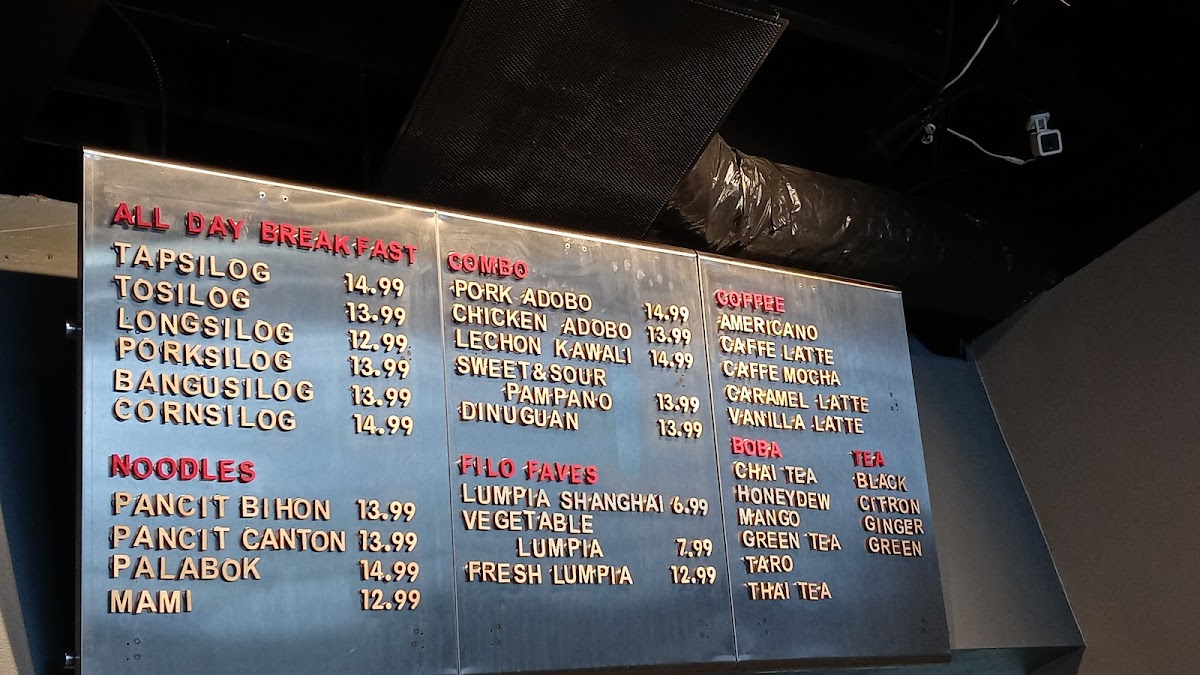 ALL DAY BREAKFAST
TAPSILOG 14.99
TOSILOG 13.99
LONGSILOG 12.99
PORKSILOG 13.99
BANGUSILOG 13.99
CORNSILOG 14.99
NOODLES
PANCIT BIHON 13.99
PANCIT CANTON 13.99
PALABOK 14.99
MAMI 12.99
COMBO
PORK ADOBO 14.99
CHICKEN ADOBO 13.99
LECHON KAWALI 14.99
SWEET&SOUR
PAMPANO 13.99
DINUGUAN 13.99
FILO FAVES
LUMPIA SHANGHAI 6.99
VEGETABLE
LUMPIA 7.99
FRESH LUMPIA 12.99
COFFEE
AMERICANO
CAFFE LATTE
CAFFE MOCHA
CARAMEL LATTE
VANILLA LATTE
BOBA
CHAI TEA
HONEYDEW
MANGO
GREEN TEA
TARO
THAI TEA
TEA
BLACK
CITRON
GINGER
GREEN